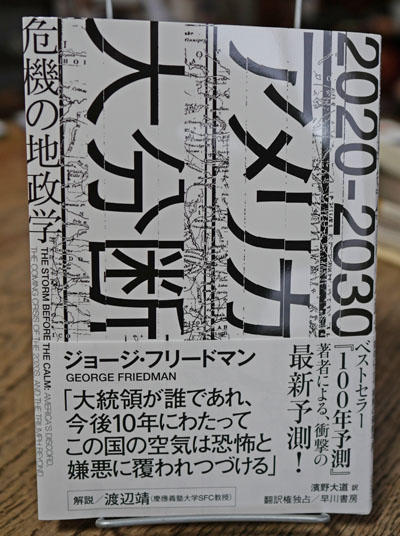 2020-2030
アメリカ
大分断
危機の地政学
THE STORM BEFORE THE CALM: AMERICA'S DISCORD,
THE COMING CRISIS OF THE 2020s, AND THE TRIUMPH BEYOND
ジョージ・フリードマン
GEORGE FRIEDMAN
「大統領が誰であれ、
今後10年にわたって
この国の空気は恐怖と
嫌悪に覆われつづける」
解説/渡辺靖(慶應義塾大学SFC教授)
ベストセラー
『100年予測』
著者による、衝撃の
最新予測!
濱野大道 訳
翻訳権独占/早川書房